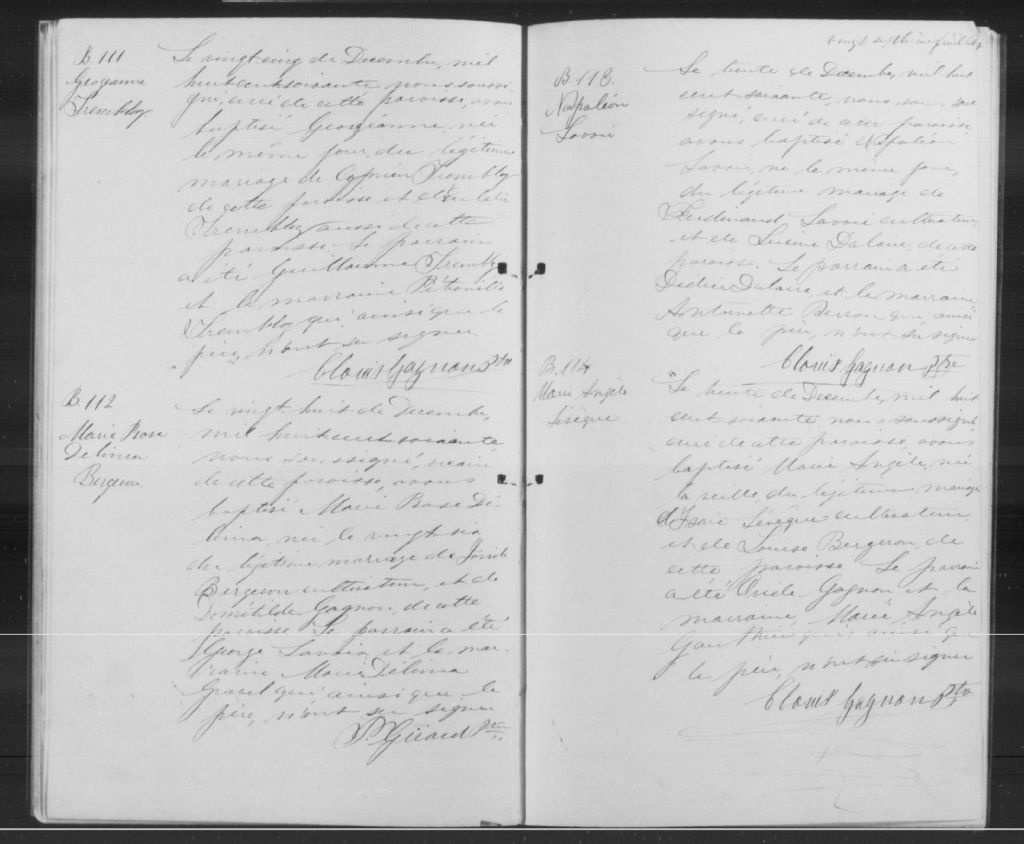 B. 111
Georgeanne
Tremblay
Le vingt cinq de Decembre, mil
huit cent soixante nous soussi-
gné, curé de cette paroisse, avons
baptisé Georgianne, née
le même jour, du légitime
mariage de Cyprien Tremblay
de cette paroisse et d'Eulalie
Tremblay aussi de cette
paroisse. Le parrain
a été Guillaume Tremblay
et la marraine Pétronille
Tremblay qui ainsi que le
père, n'ont su signer
Clovis Gagnon Ptre
B. 112
Marie Rose
Delima
Bergeron
Le vingt huit de Decembre,
mil huit cent soixante
nous soussigné, vicaire
de cette paroisse, avons
baptisé Marie Rose Dé-
lima, née le vingt six
du légitime mariage de
Bergeron cultivateur, et de
Domitilde Gagnon, de cette
paroisse Le parrain a été
George et la mar-
raine Marie Délima
Gravel qui ainsi que le
père, n'ont su signer
P. Girard Ptre
vingt septième feuillet
B. 113.
Napoléon
Savoie
Le trente de Decembre mil huit
cent soixante, nous sous
signé, curé de cette paroisse
avons baptisé Napoléon
Savoie, né le même jour,
du légitime mariage de
Ferdinand Savoie cultivateur
et de Dalaire, de cette
paroisse. Le parrain a été
Didier Dalaire et la marraine
Antoinette Perron qui ainsi
que le père, n'ont su signer
Clovis Gagnon Ptre
B. 114
Marie Angèle
Lévêque
Le trente de Decembre, mil huit
cent soixante nous soussigné
curé de cette paroisse, avons
baptisé Marie Angèle, née
la veille, du légitime mariage
d'Isaïe Lévêque cultivateur,
et de Louise Bergeron, de
cette paroisse Le parrain
a été Gagnon et la
marraine, Marie Angèle
Gauthier qui ainsi que
le père, n'ont su signer
Clovis Gagnon Ptre